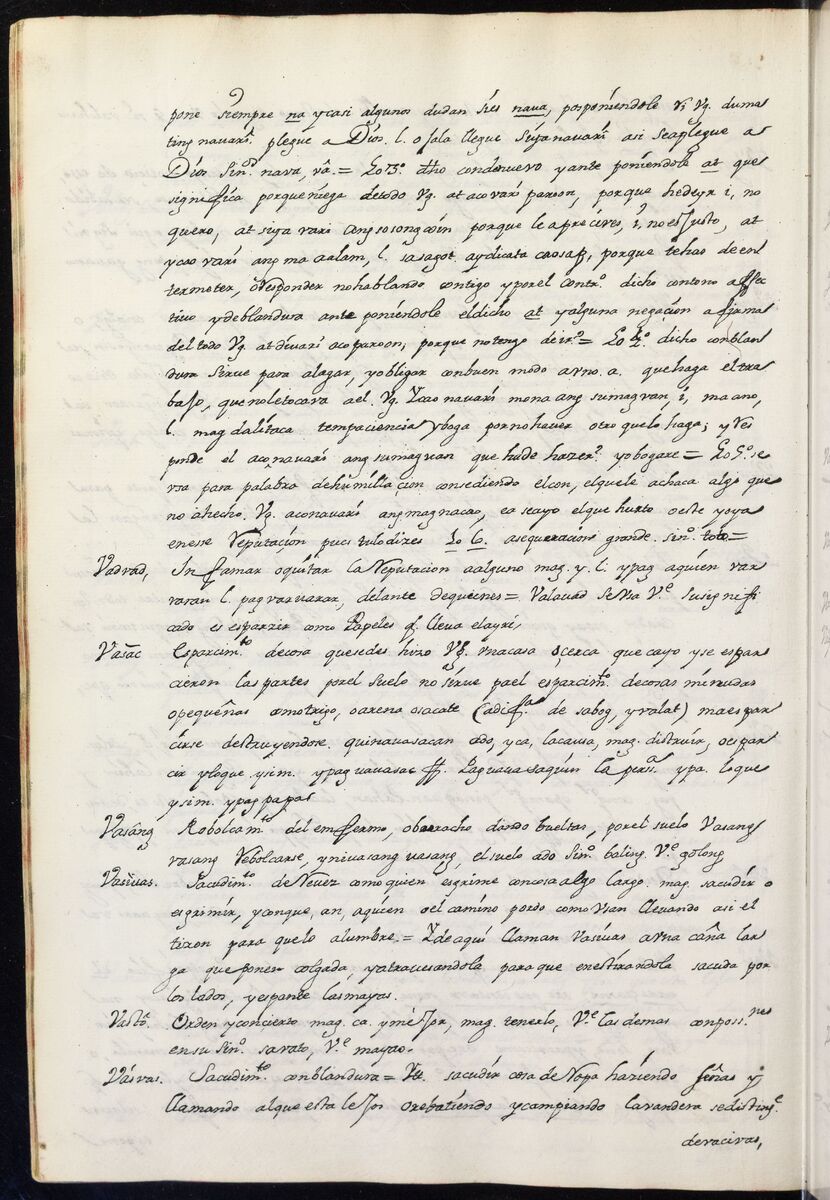 pone siempre na ycasi algunos dudan sies nava, posponiendole Vg. dumas
ting navari. plegue a Dios. l. o sala llegue suya navari asi sea plegue a
Dios sin.º nava, vâ. = Lo 3.º dho condenuevo y ante poniendole at que
significa porque niega detodo Vg. at aco vari paroon, porque hedeyr i, no
quero, at suya vari ang sosongooin porque le aprecives, i, no es Justo, at
ycao vari ang ma aalam, l. sasagot aydicata caosap, porque tehas de en
termeter, o Responder no hablando contigo y por el contr.º dicho con tono affec
tivo y deblandura ante poniendole el dicho at y alguna negacion afirma
del todo Vg. at di vari aco paroon, porque no tengo de ir.= Lo 4.º dicho con blan
dura sirve para alagar, y obligar con buen modo a vno. a. que haga el tra
bajo, que no le tocava a el. Vg. Ycao navari mona ang sumagvan, i, ma ano,
l. magdalitaca tempaciencia y boga por no haver otro que lo haga; y Res
ponde el aco navari ang sumaguan que hede hazer? yo bogare = Lo 5.º se
vsa para palabra dehumillacion consediendo el con, el que le achaca algo que
no à hecho. Vg. aco navari ang magnacao, ea sea yo el que hurto oeste yo ya
en esse Reputacion pues tulo dizes Lo 6. aseguracion grande. sin.º toto =
Vadvad, Infamar o quitar la Reputacion a alguno mag. y. l. ypag aquien var
varan l. pagvarvaran, delante de quienes = Valavad se Vsa V.e su signifi
cado es esparzir como Papeles q. lleva el ayre,
Vasac Esparcim.to de cosa que se des hizo Vg. Vna casa o çerca que cayo y se espar
cieron las partes por el suelo no sirve pa el esparcim.to decosas menudas
o pequeñas como trigo, o arena o sacate (a dif.a de sabog, y valat) mas espar
cirse destruyendose. quinavasacan ado, yca, la causa, mag. distruir, o espar
cir y lo que ysin. y pag vavasac ff. Paguavasaquin la pers.a ypa. lo que
y sim. y pag papa
Vasang Rebolcam.to del enfermo, o borracho dando bueltas, por el suelo Vasang
vasang Rebolcarse, y nivasang vasang, el suelo ado sin.º baling V.e golong
Vasivas. Sacudim.to de Revez como quien esgrime con cosa algo larga. mag. sacudir o
esgrimir, y conque, an, aquien o el camino pordo como Vsan llevando asi el
tizon para que lo alumbre. = Y de aqui llaman Vasivas a vna caña lar
ga que ponen colgada, y atravesandola para que en estirandola sacuda por
los lados, y espante las mayas.
Vasto. Orden y concierto mag. ca. y mejor, mag. tenerlo, V.e las demas composs.nes
en su sin.º savato, V.e mayao.
Vasvas. Sacudim.to con blandura = Vt. sacudir cosa de Ropa haziendo señas y
llamando al que esta lejos o rebatiendo y campiando la vandera se disting.e
de vacivas,